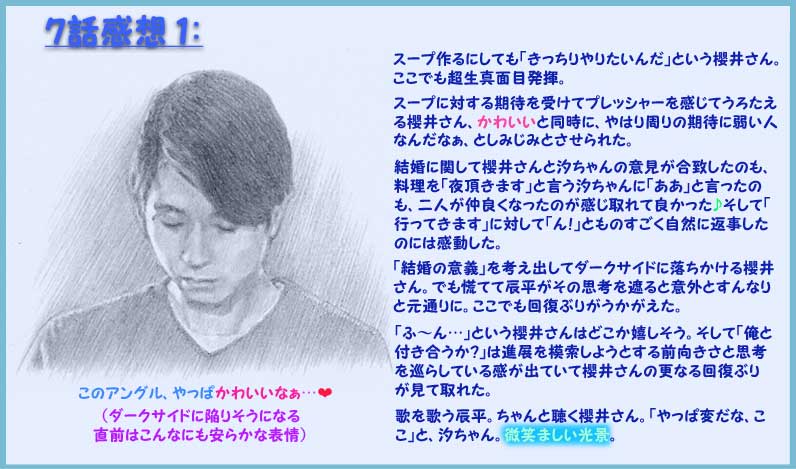 7話感想 1:
スープ作るにしても「きっちりやりたいんだ」という櫻井さん。
ここでも超生真面目発揮。
スープに対する期待を受けてプレッシャーを感じてうろたえ
る櫻井さん、かわいいと同時に、やはり周りの期待に弱い人
なんだなぁ、としみじみとさせられた。
結婚に関して櫻井さんと汐ちゃんの意見が合致したのも、
料理を「夜頂きます」と言う汐ちゃんに「ああ」と言ったの
も、二人が仲良くなったのが感じ取れて良かった♪そして「
行ってきます」に対して「ん!」とものすごく自然に返事した
のには感動した。
「結婚の意義」を考え出してダークサイドに落ちかける櫻井
さん。でも慌てて辰平がその思考を遮ると意外とすんなり
と元通りに。ここでも回復ぶりがうかがえた。
「ふ~ん…」という櫻井さんはどこか嬉しそう。そして「俺と
付き合うか?」は進展を模索しようとする前向きさと思考
を巡らしている感が出ていて櫻井さんの更なる回復ぶり
が見て取れた。
歌を歌う辰平。ちゃんと聴く櫻井さん。「やっぱ変だな、こ
こ」と、汐ちゃん。微笑ましい光景。
このアングル、やっぱかわいいなぁ…❤
(ダークサイドに陥りそうになる
直前はこんなにも安らかな表情)